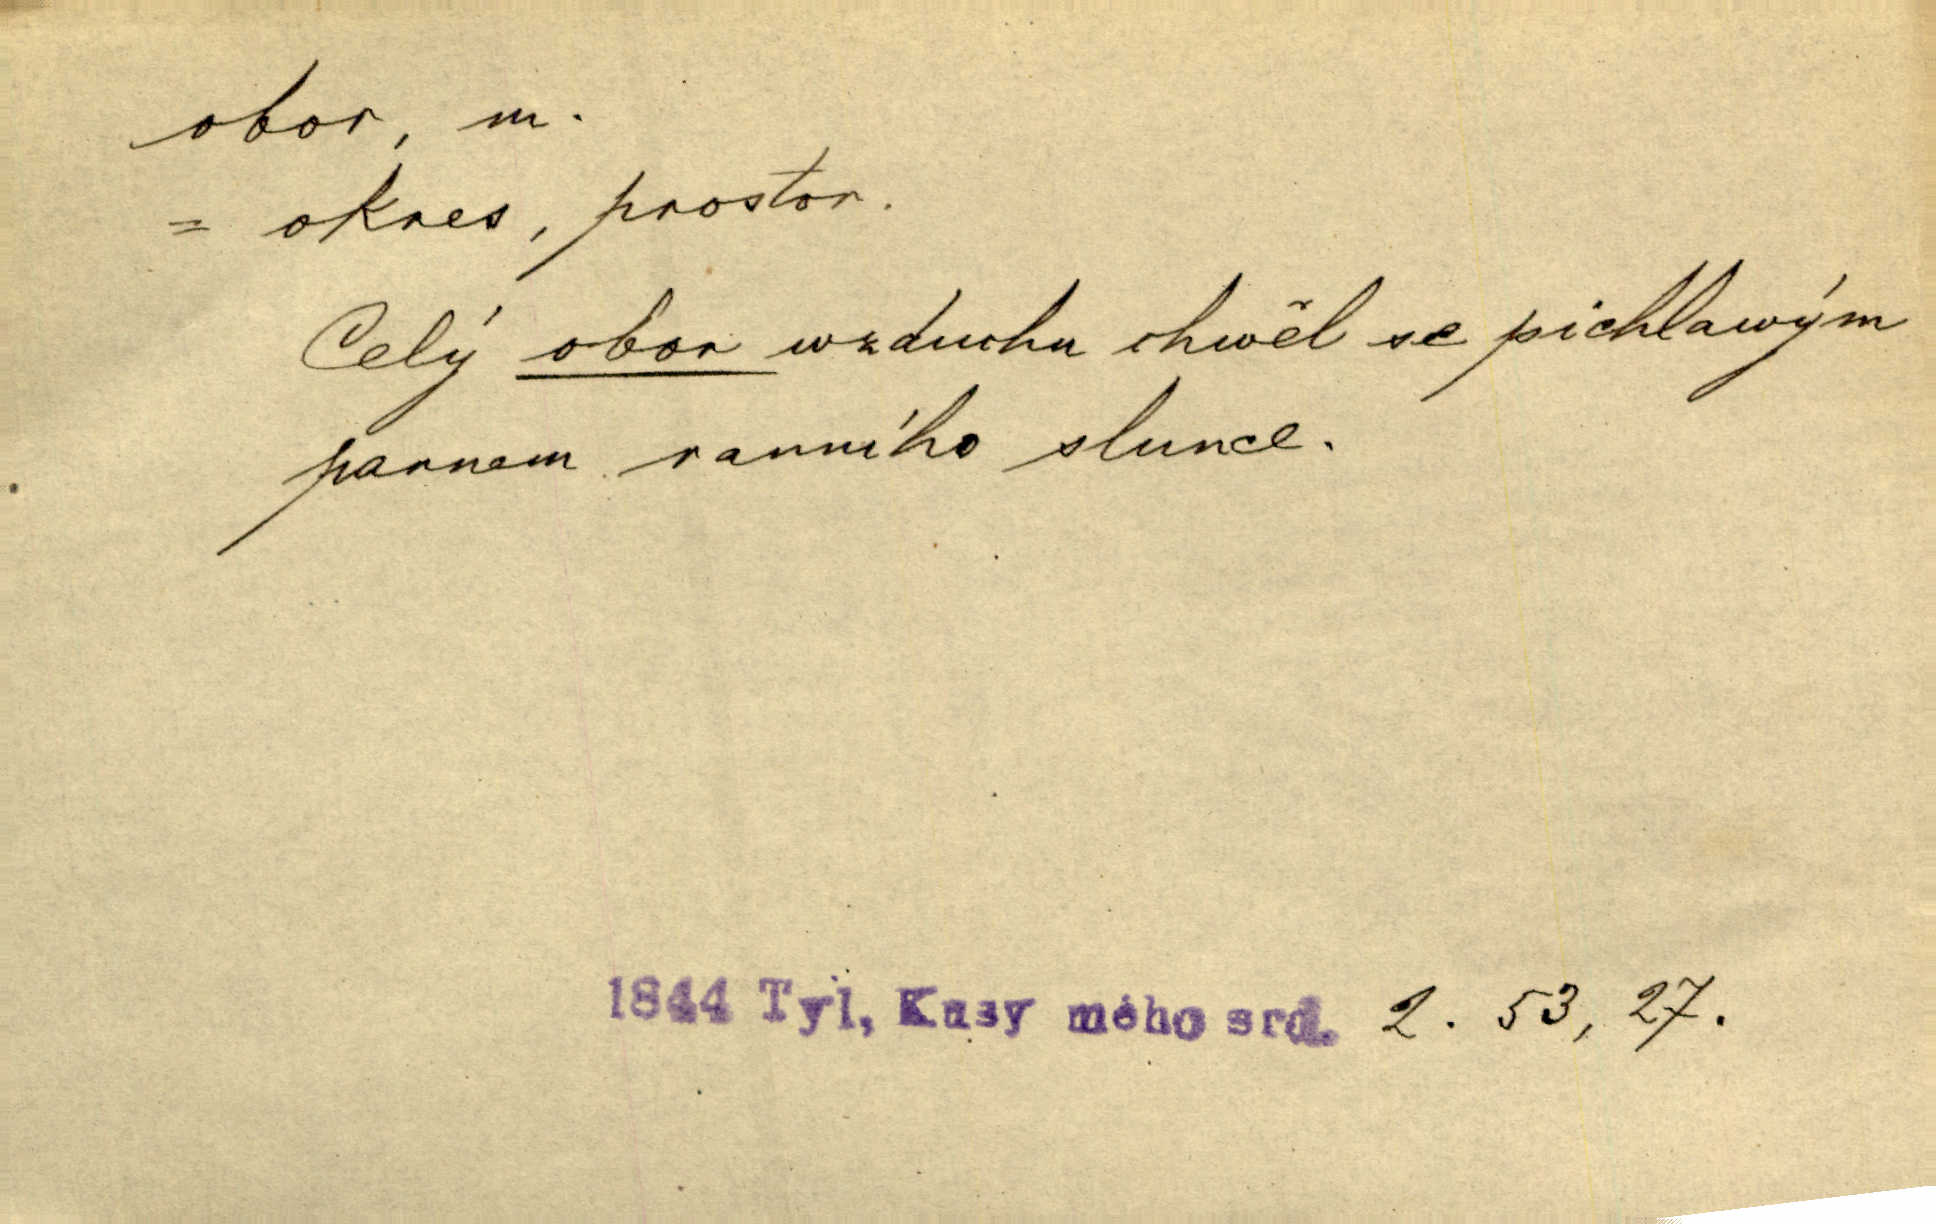 obor, m.
= okres, prostor.
Celý obor wzduchu chwěl se pichlawým
parnem ranního slunce.
1844 Tyl, Kusy mého srd. 2. 53, 27.